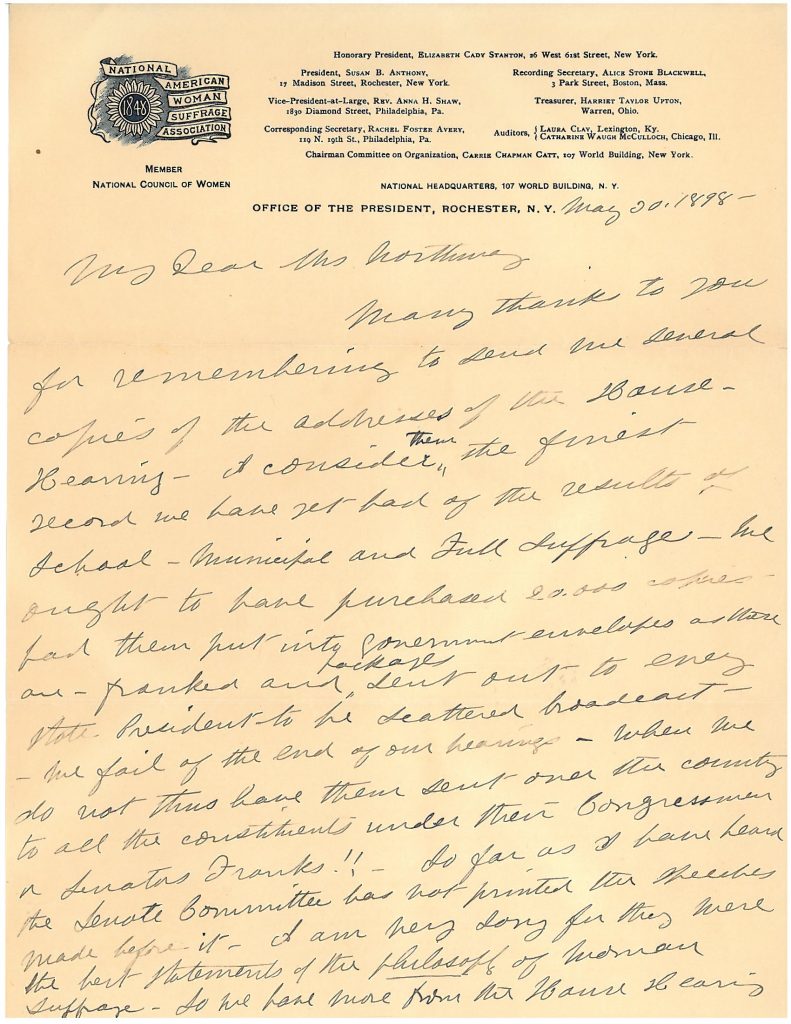 NATIONAL
AMERICAN
WOMAN
SUFFRAGE
ASSOCIATION
1848
MEMBER
NATIONAL COUNCIL OF WOMEN
Honorary President, ELIZABETH CADY STANTON, 26 West 61st Street, New York.
President, SUSAN B. ANTHONY,
17 Madison Street, Rochester, New York.
Recording Secretary, ALICE STONE BLACKWELL,
3 Park Street, Boston, Mass.
Vice-President-at-Large, REV. ANNA H. SHAW,
1830 Diamond Street, Philadelphia, Pa.
Treasurer, HARRIET TAYLOR UPTON,
Warren, Ohio.
Corresponding Secretary, RACHEL FOSTER AVERY,
119 N. 19th St., Philadelphia, Pa.
Auditors, { LAURA CLAY, Lexington, Ky.
{ CATHARINE WAUGH MCCULLOCH, Chicago, Ill.
Chairman Committee on Organization, CARRIE CHAPMAN CATT, 107 World Building, New York.
NATIONAL HEADQUARTERS, 107 WORLD BUILDING, N. Y.
OFFICE OF THE PRESIDENT, ROCHESTER, N. Y. May 20. 1898 -
My Dear Mrs Northway
Many thanks to you
for remembering to send me several
copies of the addresses of the House -
Hearing - I consider them the finest
record we have yet had of the results of
School - Municipal and Full Suffrage - We
ought to have purchased 20.000 copies -
had them put into government envelopes as these
are - franked and packages sent out to every
state President to be scattered broadcast -
- We fail of the end of our hearings - when we
do not thus have them sent over the country
to all the constituents under their Congressmen
or Senators Franks!! - So far as I have heard
the Senate Committee has not printed the speeches
made before it - I am very sorry for they were
the best statements of the philosophy of woman
suffrage - So we have more from the House Hearing